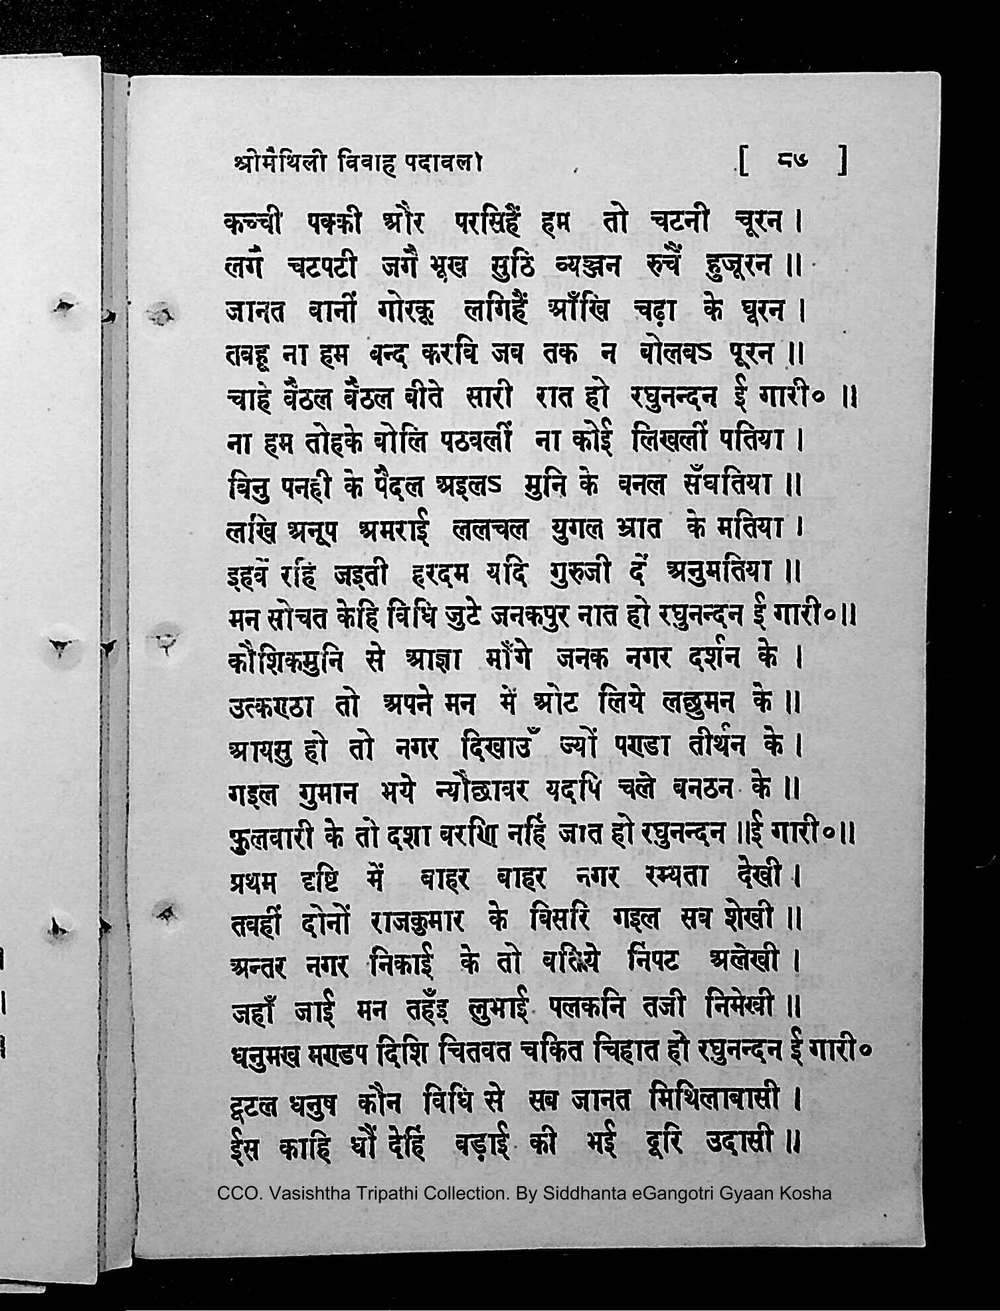 श्रीमैथिली विवाह पदावली [ ८७ ]
कच्ची पक्की और परसिहैं हम तो चटनी चूरन ।
लगै चटपटी जगै भूख सुठि व्यञ्जन रुचैं हुजूरन ॥
जानत बानीं गोरकू लगिहैं आँखि चढ़ा के घूरन ।
तबहू ना हम बन्द करबि जब तक न बोलबऽ पूरन ॥
चाहे बैठल बैठल बीते सारी रात हो रघुनन्दन ई गारी० ॥
ना हम तोहके बोलि पठवलीं ना कोई लिखलीं पतिया ।
बिनु पनही के पैदल अइलऽ मुनि के बनल सँघतिया ॥
लखि अनूप अमराई ललचल युगल भ्रात के मतिया ।
इहवें रहि जइती हरदम यदि गुरुजी दें अनुमतिया ॥
मन सोचत केहि विधि जुटे जनकपुर नात हो रघुनन्दन ई गारी०॥
कौशिकमुनि से आज्ञा माँगे जनक नगर दर्शन के ।
उत्कण्ठा तो अपने मन में ओट लिये लछुमन के ॥
आयसु हो तो नगर दिखाउँ ज्यों पण्डा तीर्थन के ।
गइल गुमान भये न्यौछावर यदपि चले बनठन के ॥
फुलवारी के तो दशा बरणि नहिं जात हो रघुनन्दन ॥ई गारी०॥
प्रथम दृष्टि में बाहर बाहर नगर रम्यता देखी ।
तबहीं दोनों राजकुमार के बिसरि गइल सब शेखी ॥
अन्तर नगर निकाई के तो निपट अलेखी ।
जहाँ जाई मन तहँइ लुभाई पलकनि तजी निमेखी ॥
धनुमख मण्डप दिशि चितवत चकित चिहात हो रघुनन्दन ई गारी०
टूटल धनुष कौन विधि से सब जानत मिथिलाबासी ।
ईस काहि धौं देहिं बड़ाई की भई दूरि उदासी ॥
CCO. Vasishtha Tripathi Collection. By Siddhanta eGangotri Gyaan Kosha